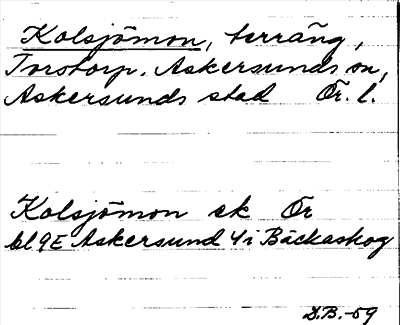 Kolsjömon, terräng,
Torstorp, Askersunds sn,
Askersunds stad Ör. l.
Kolsjömon ek Ör
bl 9E Askersund 4i Bäckaskog
D.B.-59